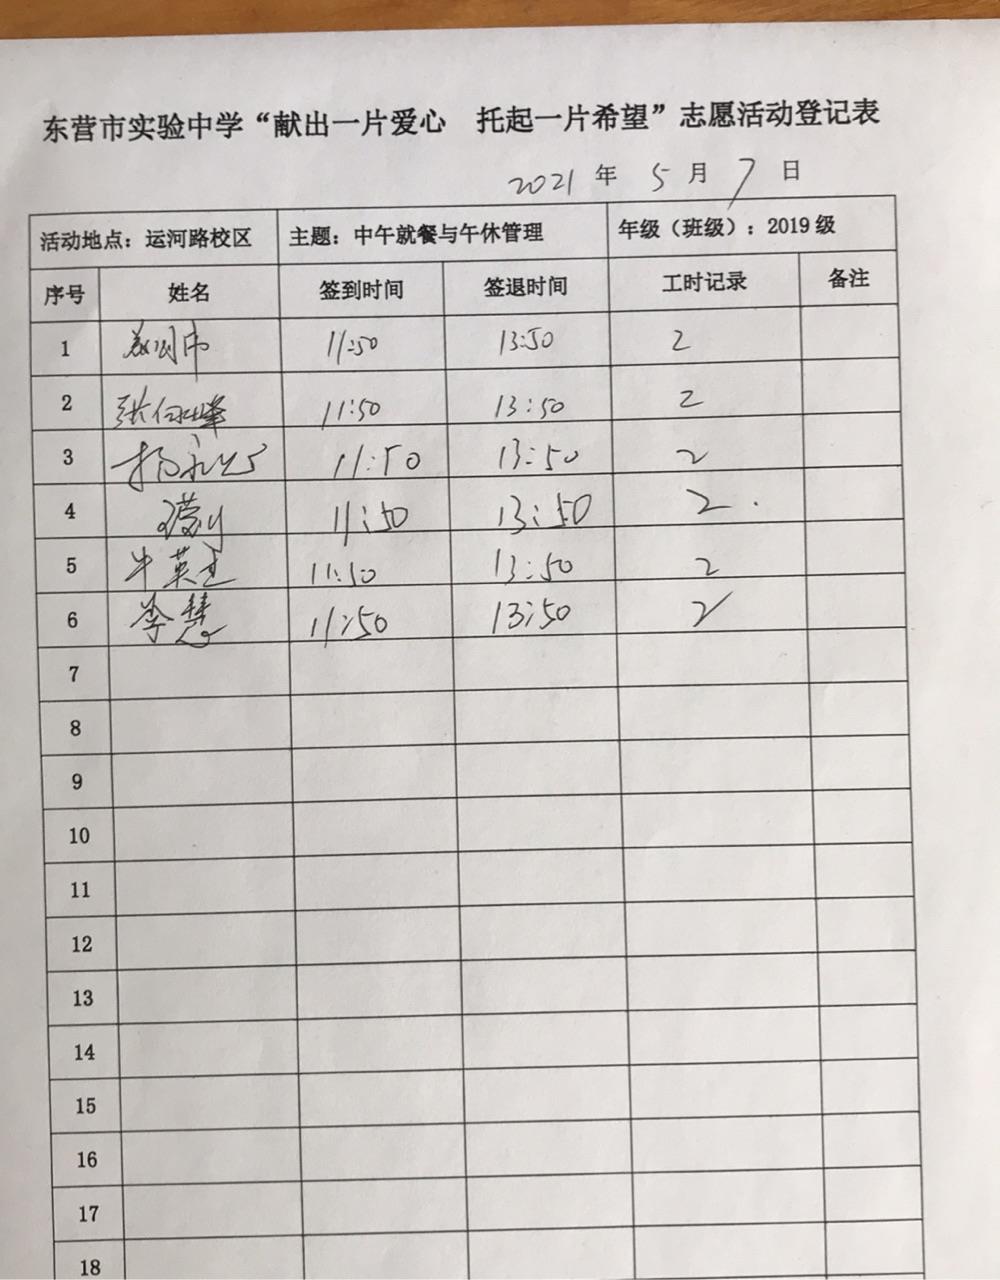 东营市实验中学“献出一片爱心 托起一片希望”志愿活动登记表
2021 年 5 月 7 日
活动地点：运河路校区 主题：中午就餐与午休管理 年级（班级）：2019 级
序号 姓名 签到时间 签退时间 工时记录 备注
1 11:50 13:50 2
2 11:50 13:50 2
3 11:50 13:50 2
4 11:50 13:50 2
5 牛英 11:50 13:50 2
6 李慧 11:50 13:50 2
7
8
9
10
11
12
13
14
15
16
17
18